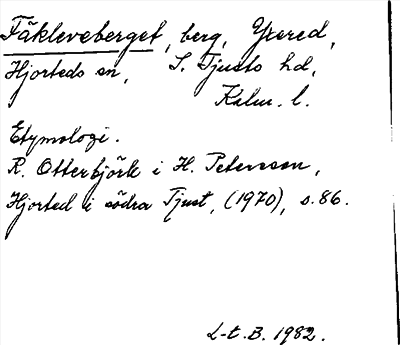 Fäkleveberget, berg, Yxered,
Hjorteds sn, S. Tjusts hd,
Kalm. l.
Etymologi.
R. Otterbjörk i H. Petersson,
Hjorted i södra Tjust, (1970), s. 86.
L-t. B. 1982.